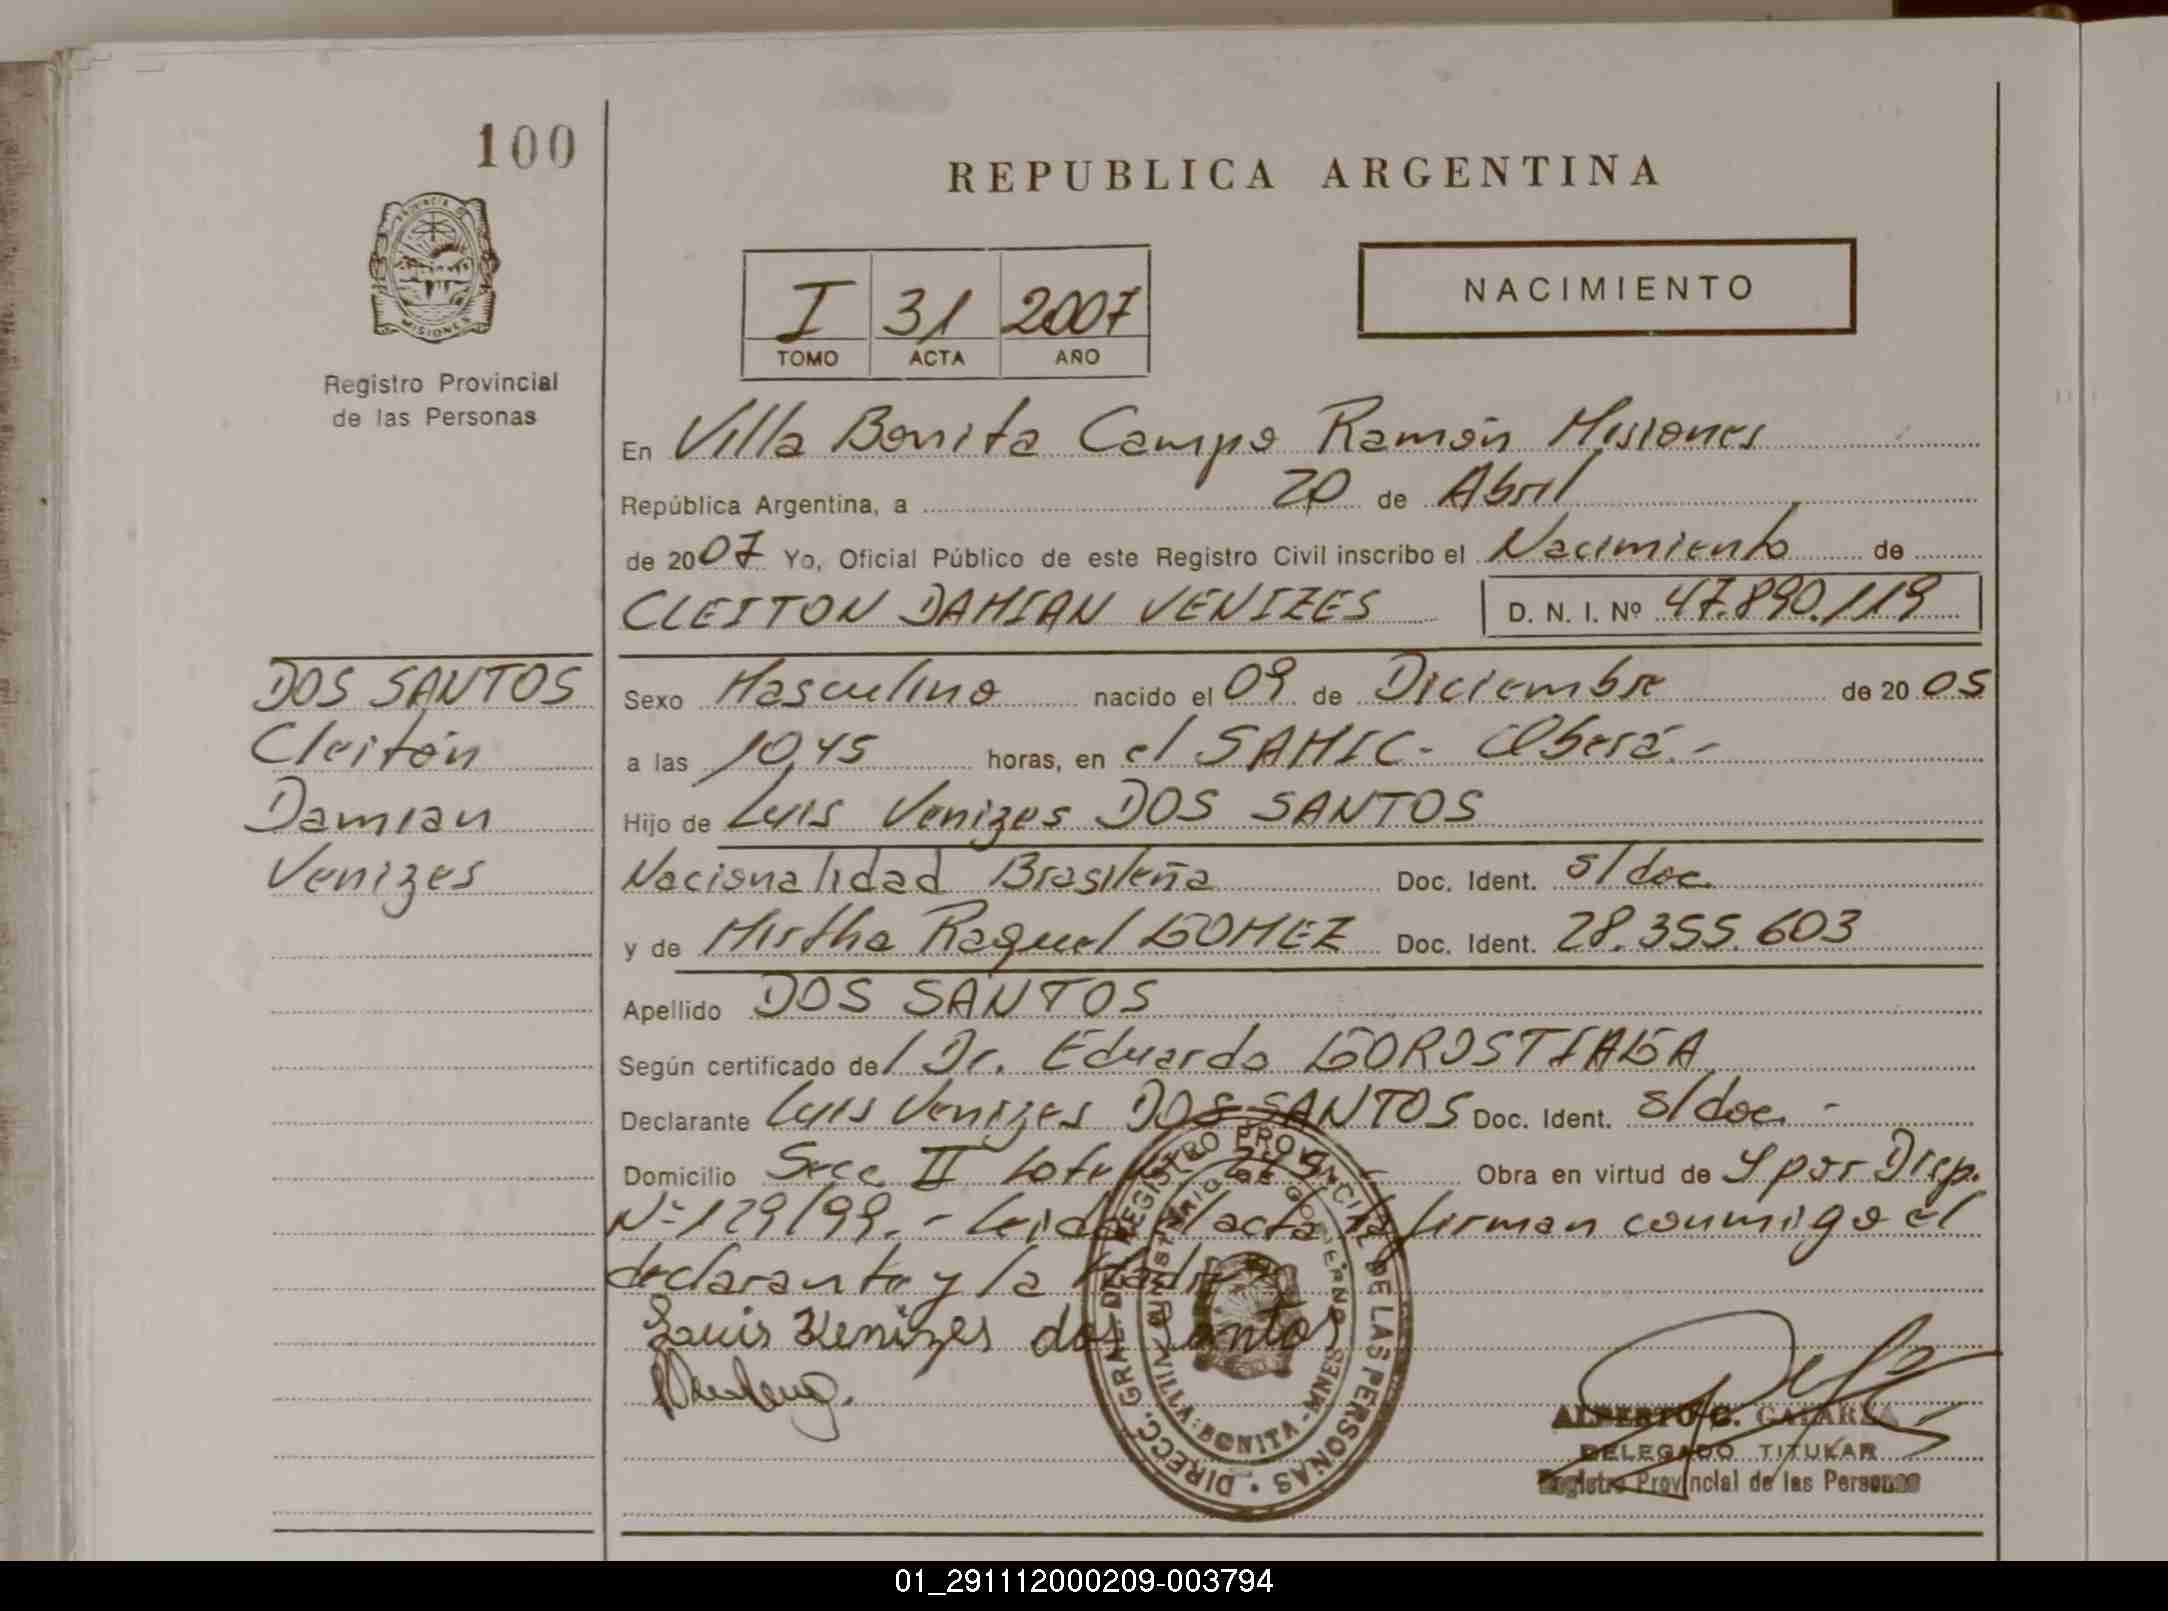 100
REPUBLICA ARGENTINA
PROVINCIA DE
MISIONES
Registro Provincial
de las Personas
I 31 2007
TOMO ACTA AÑO
NACIMIENTO
En Villa Bonita Campo Ramón Misiones
República Argentina, a 20 de Abril
de 2007 Yo, Oficial Público de este Registro Civil inscribo el Nacimiento de
CLEITON DAMIAN VENIZES D. N. I. Nº 47.890.119
DOS SANTOS
Cleitón
Damian
Venizes
Sexo Masculino nacido el 09 de Diciembre de 2005
a las 10,45 horas, en el SAMIC- Oberá.-
Hijo de Luis Venizes DOS SANTOS
Nacionalidad Brasileña Doc. Ident. s/doc.
y de Mirtha Raquel GOMEZ Doc. Ident. 28.355.603
Apellido DOS SANTOS
Según certificado del Dr. Eduardo GOROSTIAGA
Declarante Luis Venizes DOS SANTOS Doc. Ident. s/doc.-
Domicilio Secc II Lote Obra en virtud de Y por Disp.
Nº 129/99.- Leida el acta la firman conmigo el
declarante y la Madre
Luis Venizes dos Santos
DIRECC. GRAL. DEL REGISTRO PROVINCIAL DE LAS PERSONAS
MINISTERIO DE GOBIERNO
VILLA BONITA - MNES
ALBERTO G.
DELEGADO TITULAR
Registro Provincial de las Personas
01_291112000209-003794